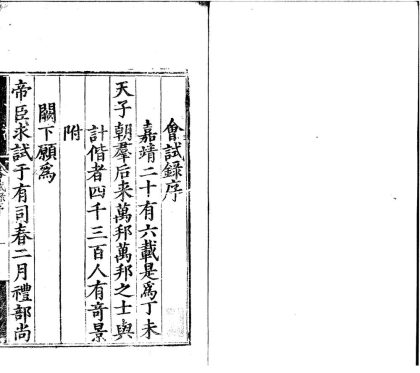 會試錄序
嘉靖二十有六載是爲丁未
天子朝羣后来萬邦萬邦之士與
計偕者四千三百人有奇景
附
闕下願爲
帝臣求試于有司春二月禮部尚